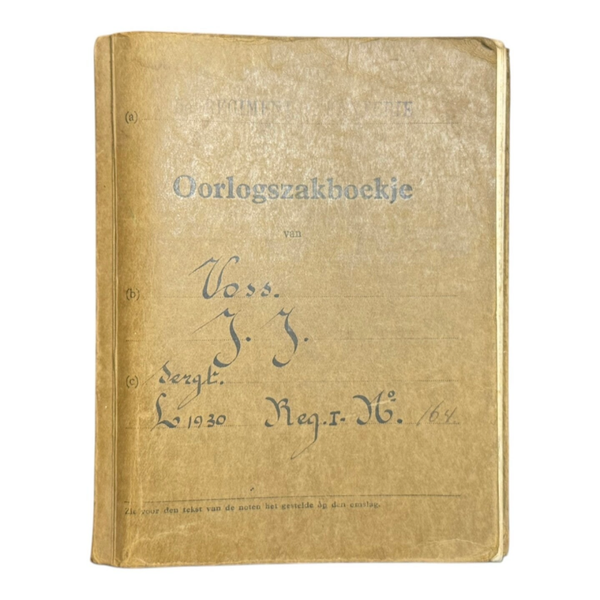 (a)
Oorlogszakboekje
van
(b) Voss.
J. J.
(c) Sergt.
L 1930 Reg.r. No. 164
Zie voor den tekst van de noten het gestelde op den omslag.